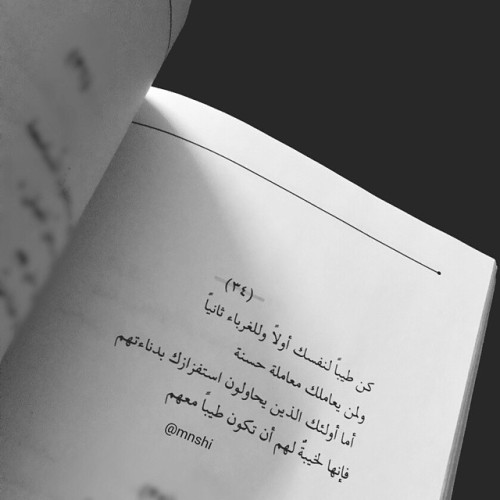 (٣٤)
كن طيباً لنفسك أولاً وللغرباء ثانياً
ولمن يعاملك معاملة حسنة
أما أولئك الذين يحاولون استفزازك بدناءتهم
فإنها لخيبةٌ لهم أن تكون طيباً معهم
@mnshi